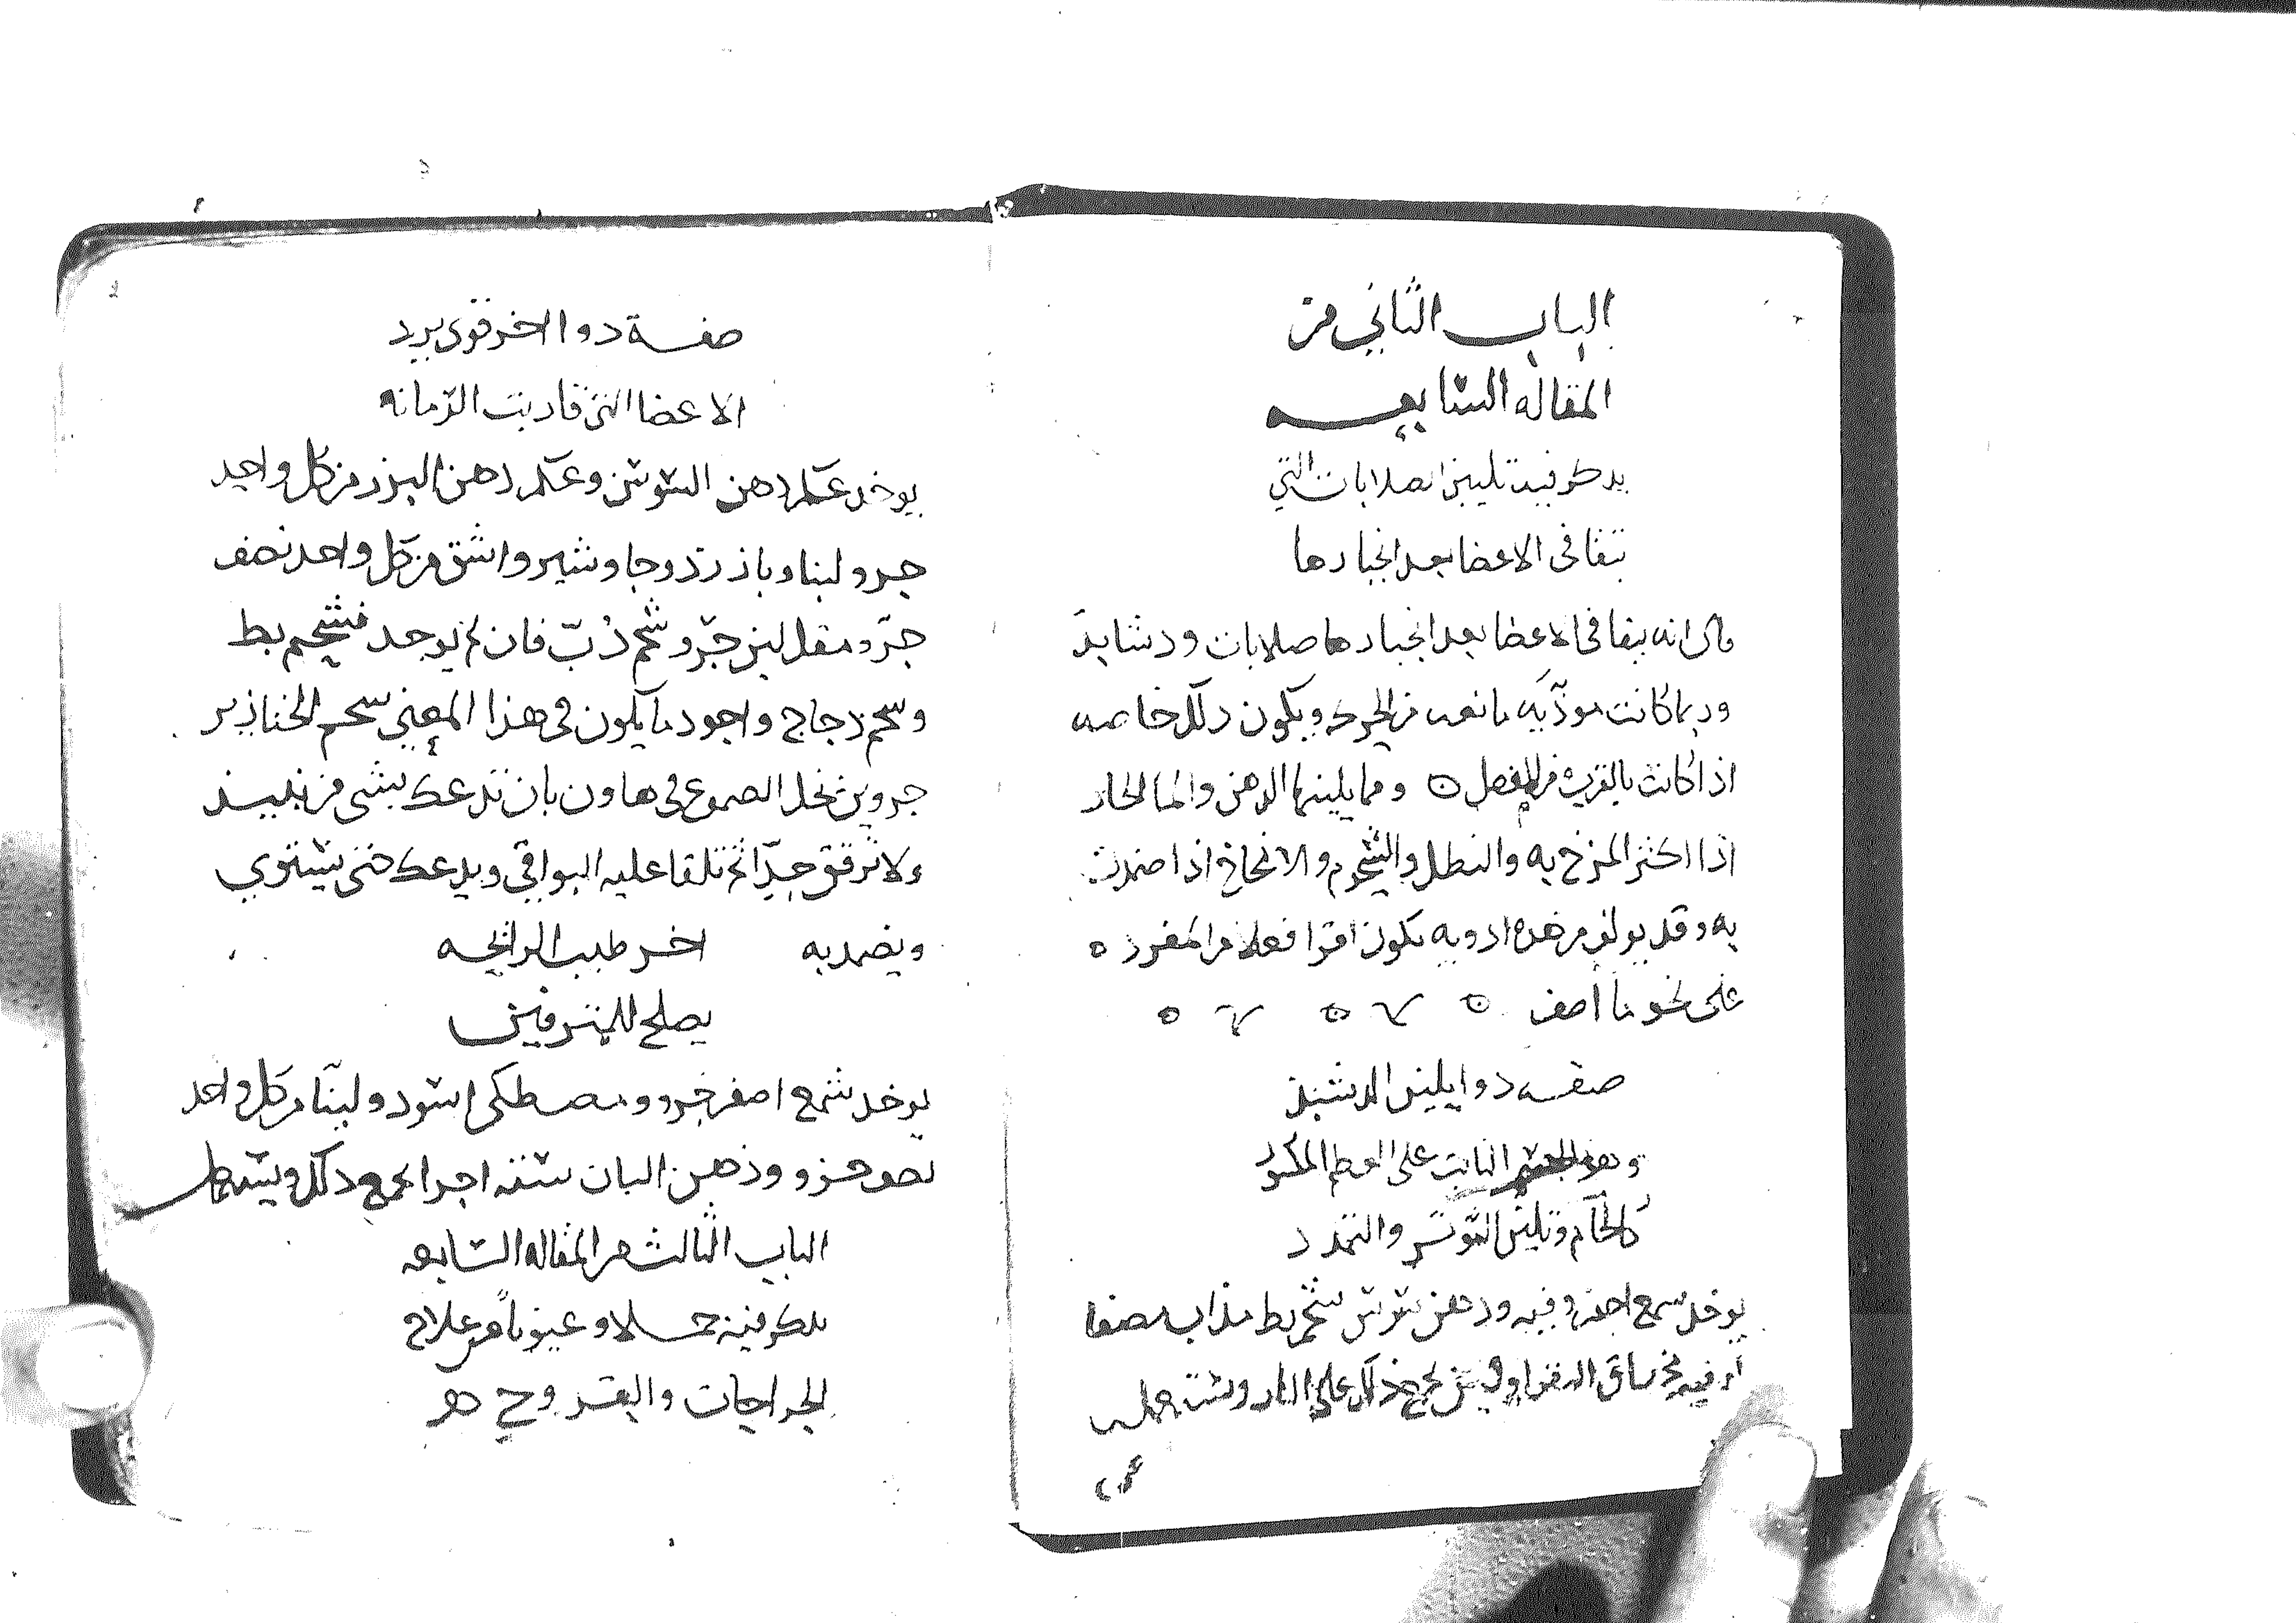 الباب الثاني من
المقاله السابعه
يدكر فيه تليين الصلابات التي
تبقا في الاعضا بعد انجبارها
قال انه يبقا في الاعضا بعد انجبارها صلابات ودشابد
وربما كانت موذيه مانعه من الحركه ويكون دلك خاصه
اذا كانت بالقرب من المفصل ومما يلينها الدهن والما الحار
اذا اكثر المزخ به والنطل والشحوم والانخاخ اذا ضمدت
به وقد يولف من هده ادويه يكون اقوا فعلا من المفرده
على نحو ما اصف
صفه دوا يليين الدشبذ
وهو النابت على العظم المكسور
كاللحام وتليين التوتر والتمدد
يوخد شمع احمر وفيه ودهن سوسن شحم بط مذاب مصفا
اوقيه مخ ساق البقر يجمع ذلك على النار ويستعمل
صفة دوا اخر قوي يرد
الاعضا التي قاربت الزمانه
يوخد عكر دهن السوسن وعكر دهن البزر من كل واحد
جرو لبنا وباذرد وجاوشير واشق من كل واحد نصف
جرو مقل لين جرو شحم دب فان لم يوجد فشحم بط
وسحم دجاج واجود ما يكون في هذا المعني سحم الخنازير
جروين تحل الصموغ في هاون بان تدعك بشى من نبيذ
ولا ترقق جدا ثم تلقا عليه البواقي ويدعك حتى يستوي
ويضمد به اخر طيب الرائحه
يصلح للمترفين
يوخد شمع اصفر جرو ومصطكى اسود ولبنا من كل واحد
نصف جزو ودهن البان ستة اجرا يجمع دلك ويستعمل
الباب الثالث من المقاله السابعه
يدكر فيه جملا وعيونا من علاج
الجراحات والقروح